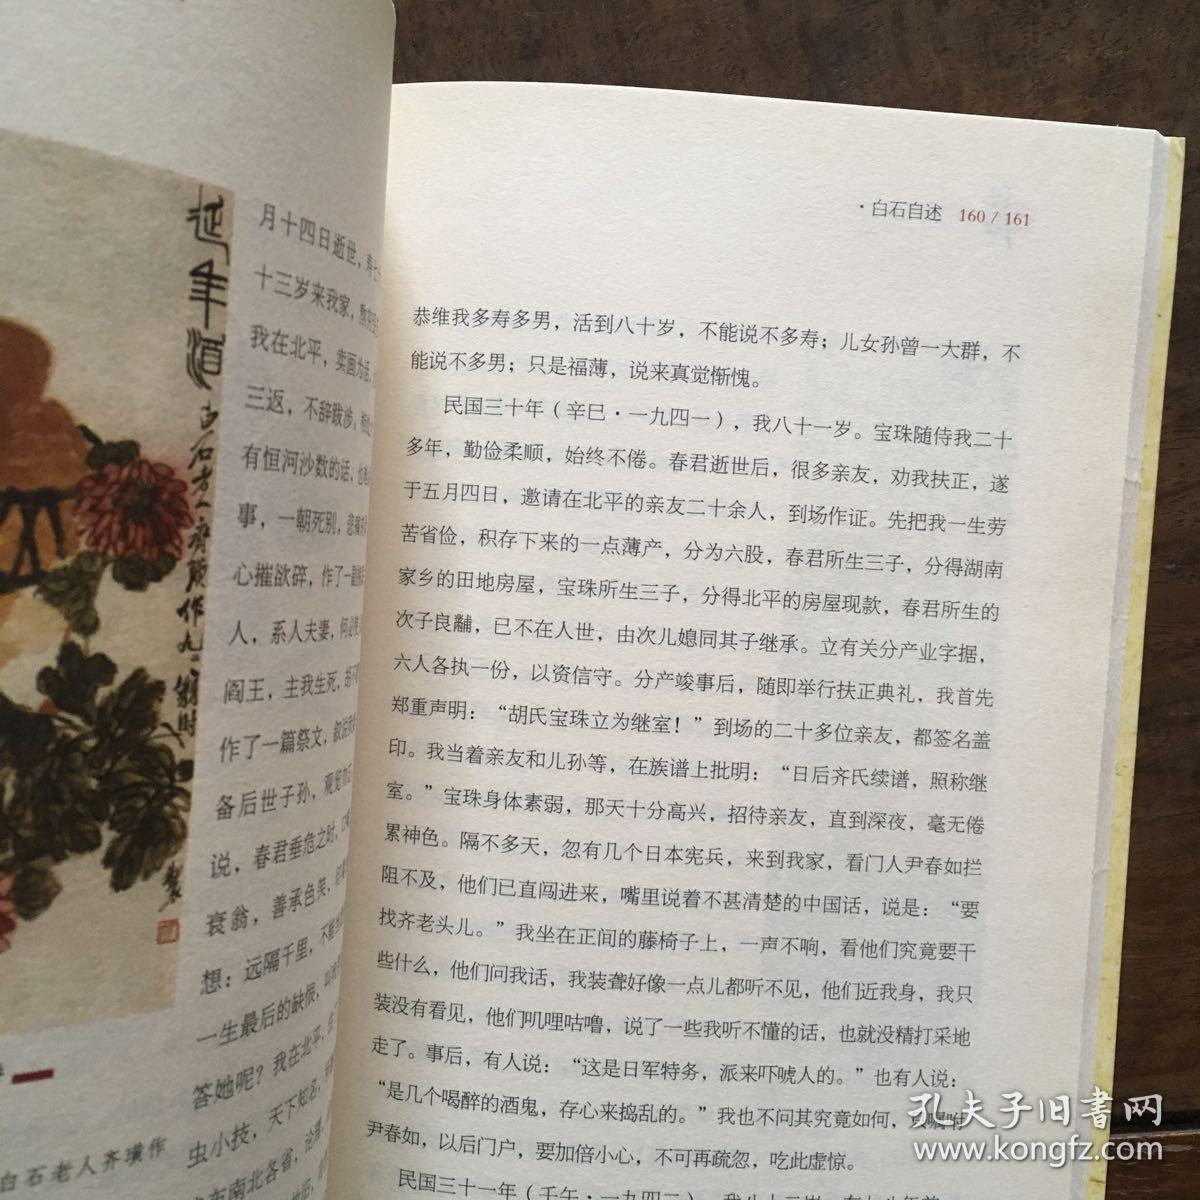 延年酒
白石老人齐璜作
月十四日逝世，寿七
十三岁来我家，熬
我在北平，卖画为活，
三返，不辞跋涉。相
有恒河沙数的话，也
事，一朝死别，悲痛
心摧欲碎，作了一副
人，系人夫妻，何必
阎王，主我生死，胡不
作了一篇祭文，叙
备后世子孙，观览
说，春君垂危之时，
衰翁，善承色笑，
想：远隔千里，不能
一生最后的缺恨，
答她呢？我在北平，
虫小技，天下知名，
南北各省，论
·白石自述 160 / 161
恭维我多寿多男，活到八十岁，不能说不多寿；儿女孙曾一大群，不
能说不多男；只是福薄，说来真觉惭愧。
民国三十年（辛巳·一九四一），我八十一岁。宝珠随侍我二十
多年，勤俭柔顺，始终不倦。春君逝世后，很多亲友，劝我扶正，遂
于五月四日，邀请在北平的亲友二十余人，到场作证。先把我一生劳
苦省俭，积存下来的一点薄产，分为六股，春君所生三子，分得湖南
家乡的田地房屋，宝珠所生三子，分得北平的房屋现款，春君所生的
次子良黼，已不在人世，由次儿媳同其子继承。立有关分产业字据，
六人各执一份，以资信守。分产竣事后，随即举行扶正典礼，我首先
郑重声明：“胡氏宝珠立为继室！”到场的二十多位亲友，都签名盖
印。我当着亲友和儿孙等，在族谱上批明：“日后齐氏续谱，照称继
室。”宝珠身体素弱，那天十分高兴，招待亲友，直到深夜，毫无倦
累神色。隔不多天，忽有几个日本宪兵，来到我家，看门人尹春如拦
阻不及，他们已直闯进来，嘴里说着不甚清楚的中国话，说是：“要
找齐老头儿。”我坐在正间的藤椅子上，一声不响，看他们究竟要干
些什么，他们问我话，我装聋好像一点儿都听不见，他们近我身，我只
装没有看见，他们叽哩咕噜，说了一些我听不懂的话，也就没精打采地
走了。事后，有人说：“这是日军特务，派来吓唬人的。”也有人说：
“是几个喝醉的酒鬼，存心来捣乱的。”我也不问其究竟如何，只嘱咐
尹春如，以后门户，要加倍小心，不可再疏忽，吃此虚惊。
民国三十一年（壬午·一九四二），我八十二岁。在七八年前
孔夫子旧书网
www.kongfz.com